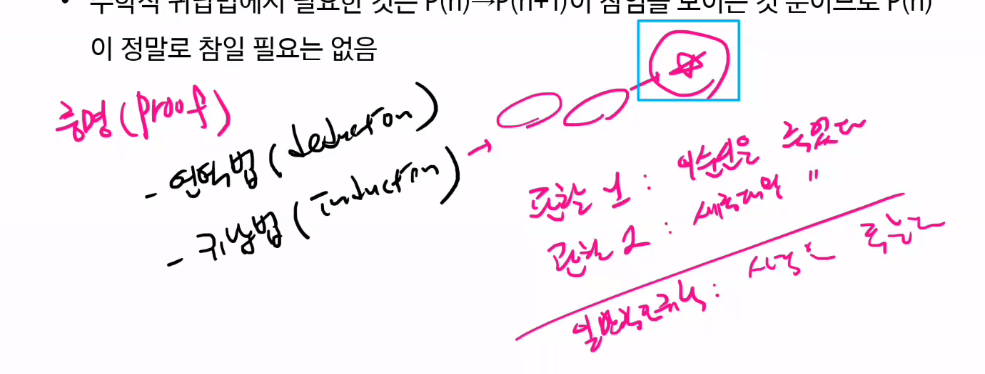 • 수학적 귀납법에서 필요한 것은 P(n)→P(n+1)이 참임을 보이는 것 뿐이므로 P(n)
이 정말로 참일 필요는 없음
증명(proof)
- 연역법(deduction)
- 귀납법(Induction) →
관찰 1 : 이순신은 죽었다
관찰 2 : 세종대왕 "
일반적인규칙: 사람은 죽는다